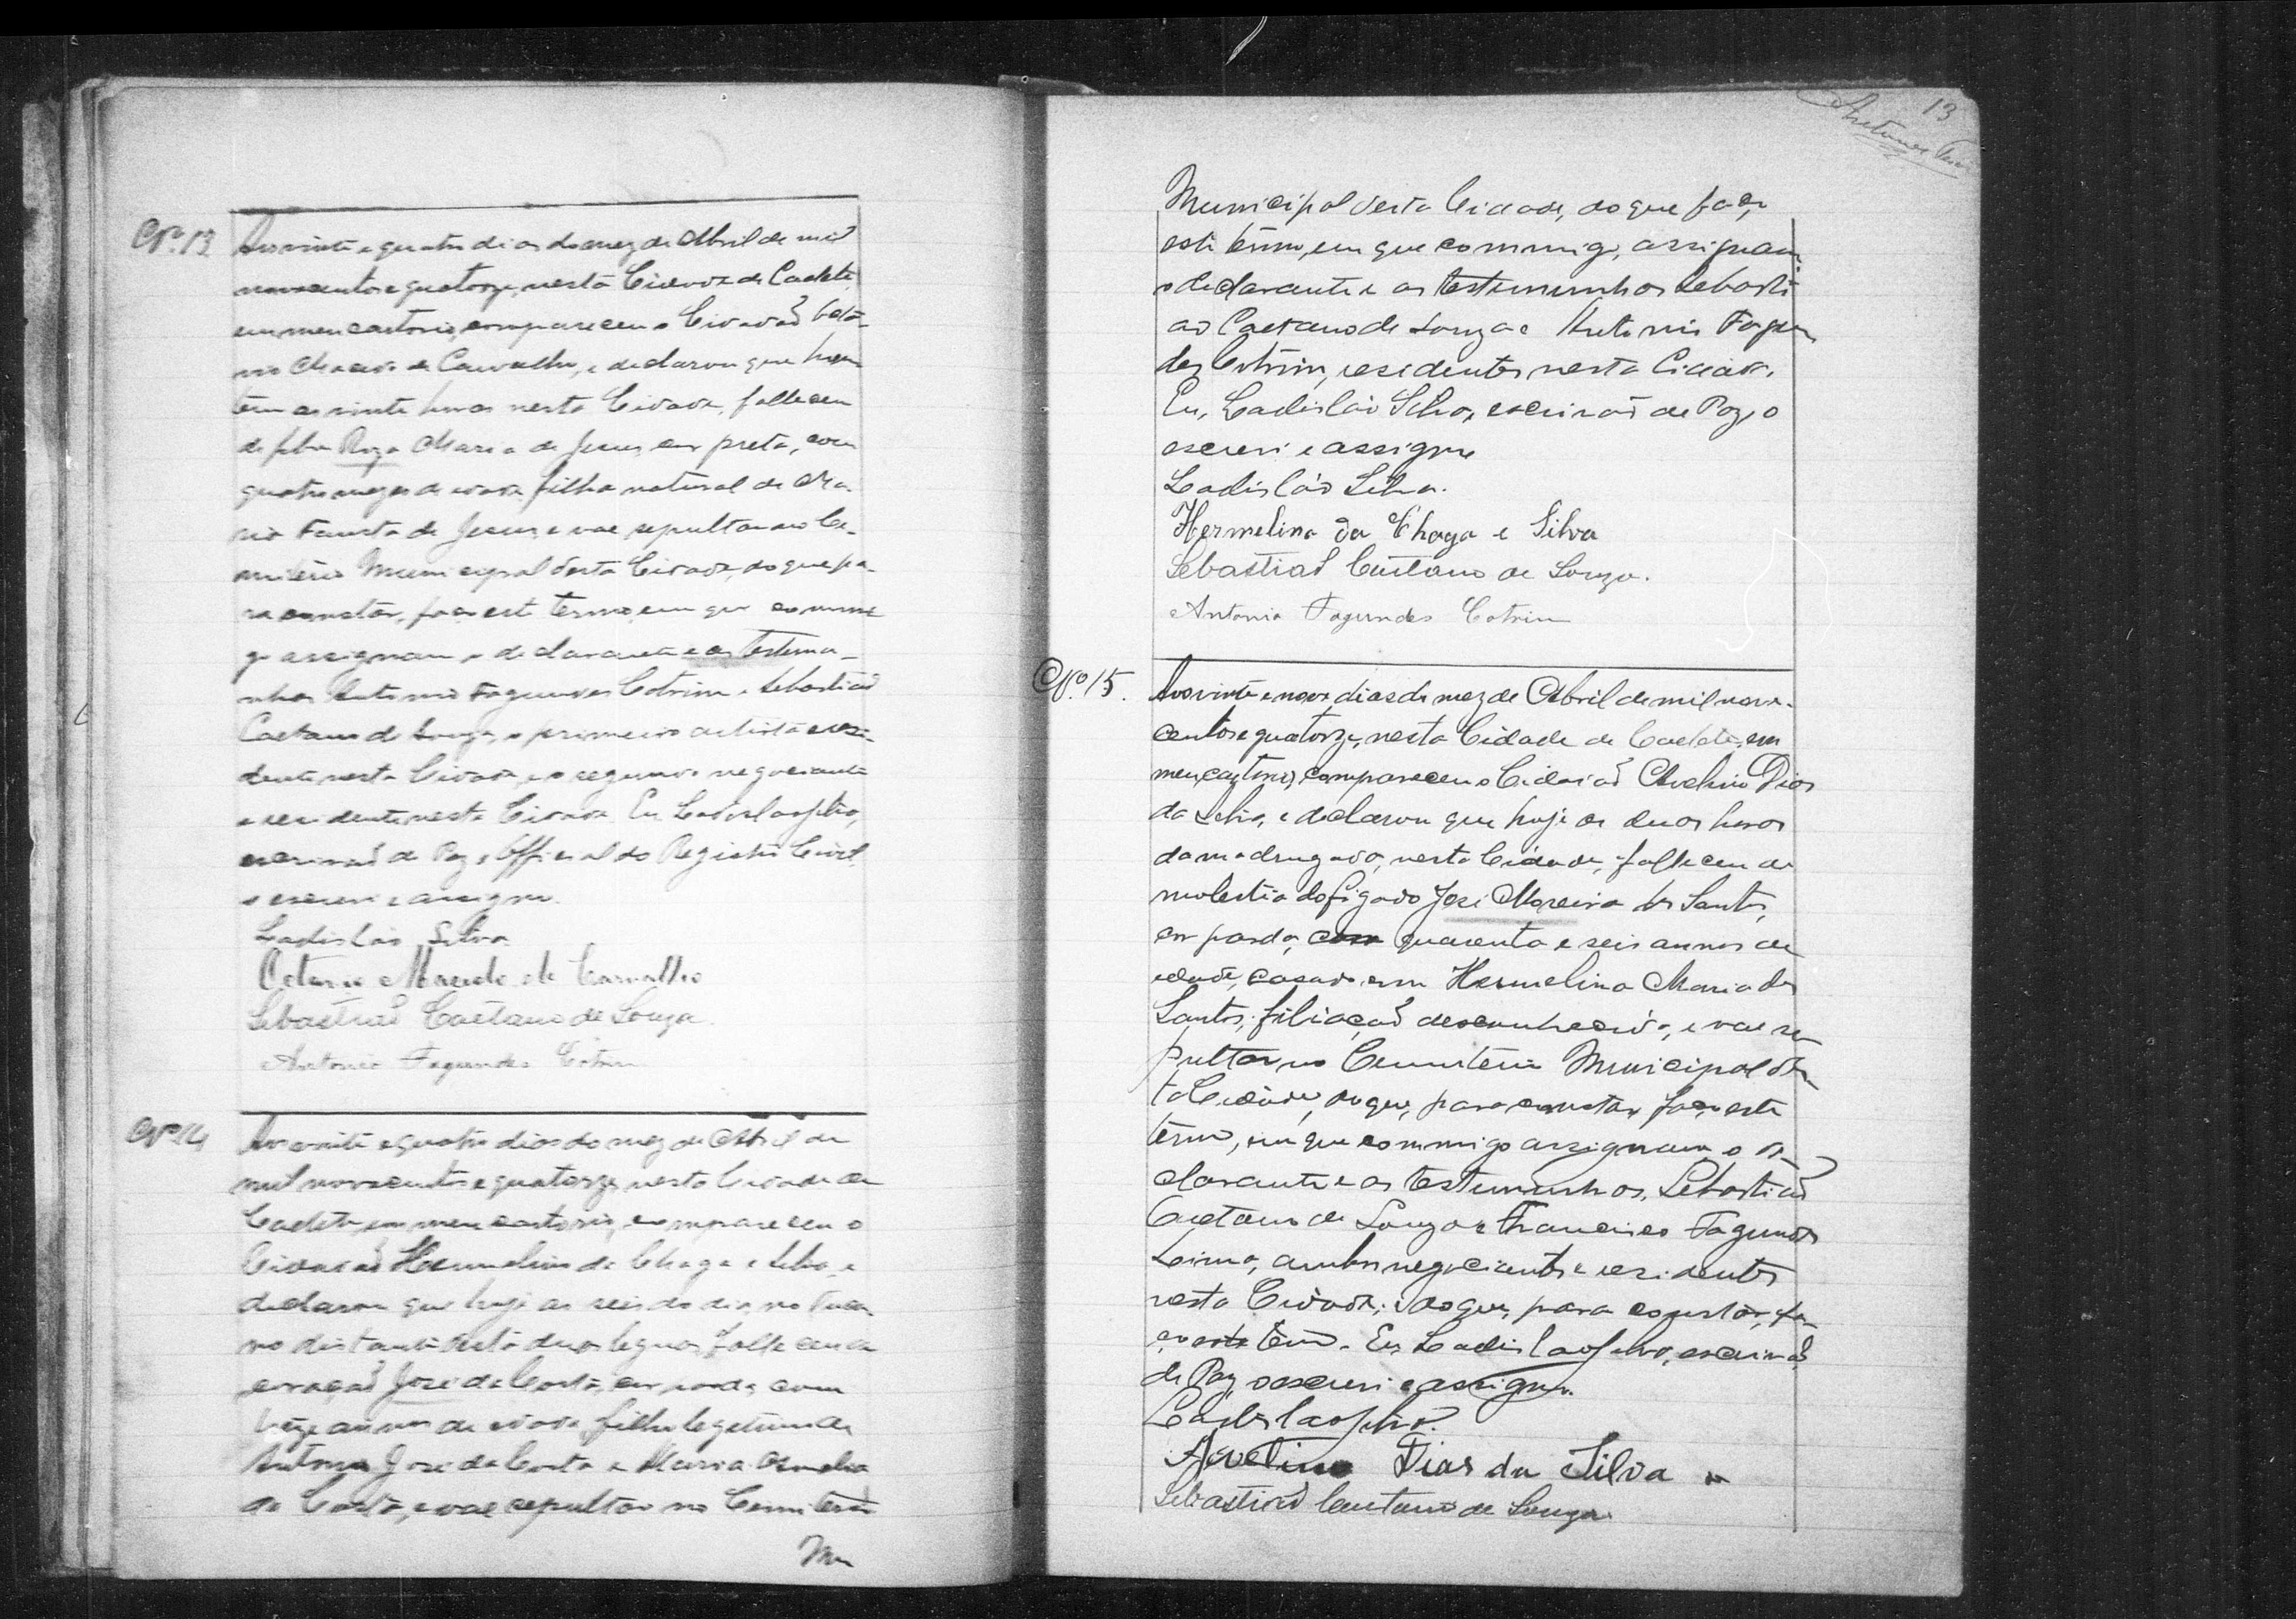 Nº 13
Aos vinte e quatro dias do mez de Abril de mil
novecentos e quatorze, nesta Cidade de Caeteté,
em meu cartorio, compareceu o Cidadaõ Octa-
vio Macedo de Carvalho, e declarou que hon
tem as vinte horas nesta Cidade, falleceu
de febre Roza Maria de Jesus, cor preta, com
quatro mezes de idade, filha natural de Ma-
ria Fausta de Jesus, e vae sepultar no Ce-
miterio Municipal desta Cidade, do que pa-
ra constar, faço este termo, em que commi
go assignam o declarante e as testemu-
nhas Antonio Fagundes Cotrim e Sebastiaõ
Caetano de Souza, o primeiro artista e resi-
dente nesta Cidade, e o segundo negociante
e residente nesta Cidade. Eu Ladislao Silva,
escrivaõ de Paz e Official do Registro Civil,
o escrevi e assigno.
Ladisláo Silva
Octavio Macedo de Carvalho
Sebastiaõ Caetano de Souza
Antonio Fagundes Cotrim
Nº 14
Aos vinte e quatro dias do mez de Abril de
mil novecentos e quatorze, nesta Cidade de
Caeteté, em meu cartorio, compareceu o
Cidadaõ Hermelino da Chaga e Silva, e
declarou que hoje as seis do dia, no
distante desta duas leguas, falleceu de
coraçaõ José da Costa, cor parda, com
treze annos de idade, filho legitimo de
Antonio José da Costa e Maria Amelia
da Costa, e vae sepultar no Cemiterio
Mu
13
Municipal desta Cidade, do que faço
este termo, em que commigo, assignam
o declarante e as testemunhas Sebasti
ao Caetano de Souza e Antonio Fagun
des Cotrim, residentes nesta Cidade.
Eu, Ladisláo Silva, escrivaõ de Paz, o
escrevi e assigno
Ladisláo Silva.
Hermelino da Chaga e Silva
Sebastiaõ Caetano de Souza.
Antonio Fagundes Cotrim
Nº 15.
Aos vinte e nove dias do mez de Abril de mil nove-
centos e quatorze, nesta Cidade de Caeteté, em
meu cartorio, compareceu o Cidadaõ Avelino Dias
da Silva, e declarou que hoje as duas horas
da madrugada, nesta Cidade, falleceu de
molestia do figado José Moreira dos Santos,
cor parda, com quarenta e seis annos de
idade, casado com Hermelina Maria dos
Santos, filiaçaõ desconhecida, e vae se
pultar no Cemiterio Municipal des
ta Cidade, do que, para constar, faço este
termo, em que commigo assignam o de-
clarante e as testemunhas, Sebastiaõ
Caetano de Souza e Francisco Fagundes
Lima, ambos negociantes e residentes
nesta Cidade; do que, para constar, fa-
ço este termo. Eu Ladislao Silva, escrivaõ
de Paz, o escrevi e assigno.
Ladislao Silva.
Avelino Dias da Silva
Sebastiaõ Caetano de Souza